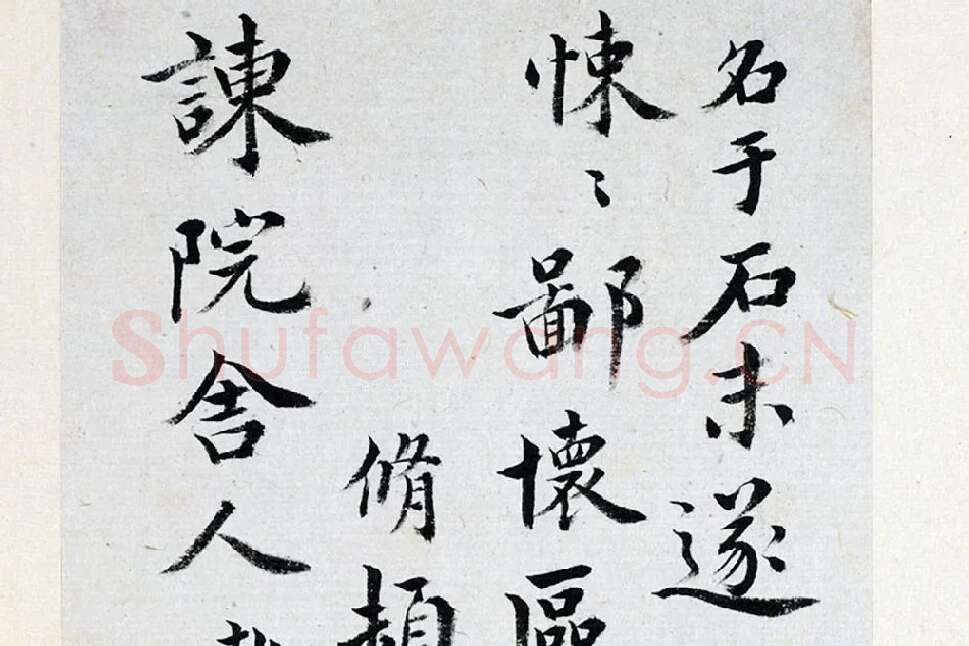 名于石未遂
悚〻鄙懷區
脩頓
諫院舍人
Shufawang.CN